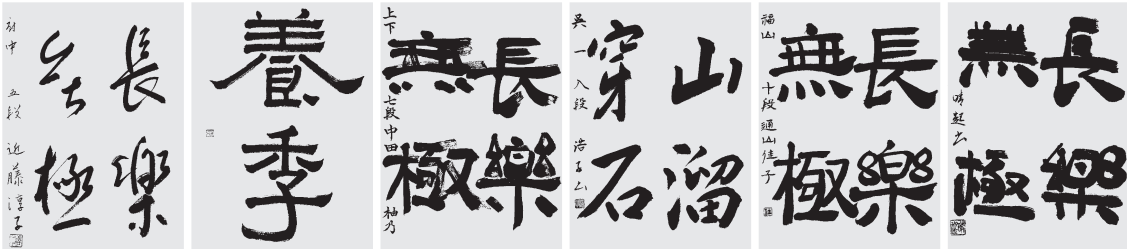 長樂
無極
府中 五段 近藤淳子
養季
長樂
無極
上下 七段 中田 柚乃
山溜
穿石
呉一 八段 浩子
長樂
無極
福山 十段 樋山佳子
長樂
無極
晴起